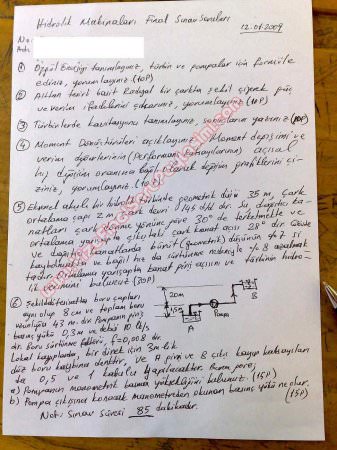 Hidrolik Makinaları Final Sınav Soruları
12.01.2009
No:
Adı:
① Özgül Enerjiyi tanımlayınız, türbin ve pompalar için formüle
ediniz, yorumlayınız (10P)
② Alttan tesirli basit Radyal bir çarkta şekil çizerek güç
ve verim ifadelerini çıkarınız, yorumlayınız (10P)
③ Türbinlerde kavitasyonu tanımlayınız, sonuçların yazınız (10P)
④ Moment Dönüştürücüleri açıklayınız. Moment değişimi ve
verim diyagramlarının (Performans açısal
hız değişim oranına bağlı olarak değişim grafiklerini çi-
ziniz, yorumlayınız (10P)
⑤ Eksenel akışlı bir hidrolik türbinde geometrik düşü 35 m, çark
ortalama çapı 2 m, çark devri 145 d/d dır. Su dağıtıcı ka-
natları çark dönme yönüne göre 30° de terketmekte ve
ortalama yarıçapta çıkıştaki çark kanat açısı 28° dir. Gövde
ve dağıtıcı kanatlarda brüt (geometrik) düşünün %7 si
kaybolmakta ve bağıl hız da sürtünme nedeniyle %8 azalmak-
tadır. Ortalama yarıçapta kanat giriş açısını ve türbinin hidro-
lik verimini bulunuz (30P)
⑥ Şekildeki tesisatta boru çapları
aynı olup 8 cm ve toplam boru
uzunluğu 43 m. dir. Pompanın giriş
basınç yükü 0,3 m ve debisi 10 lt/s
dir. Boru sürtünme faktörü, f=0,008 dir.
Lokal kayıplarda, bir dirsek için 3m lik
düz boru kaybına denktir. Ve A giriş ve B çıkış kayıp katsayıları
da 0,5 ve 1 kabulü yapılacaktır. Buna göre,
a) Pompanın manometrik basma yüksekliğini bulunuz. (15P)
b) Pompa çıkışına konacak manometreden okunan basınç yükü ne olur.
(15P)
Not: Sınav Süresi 85 dakikadır.
20m
1,5m
A
B
Pompa